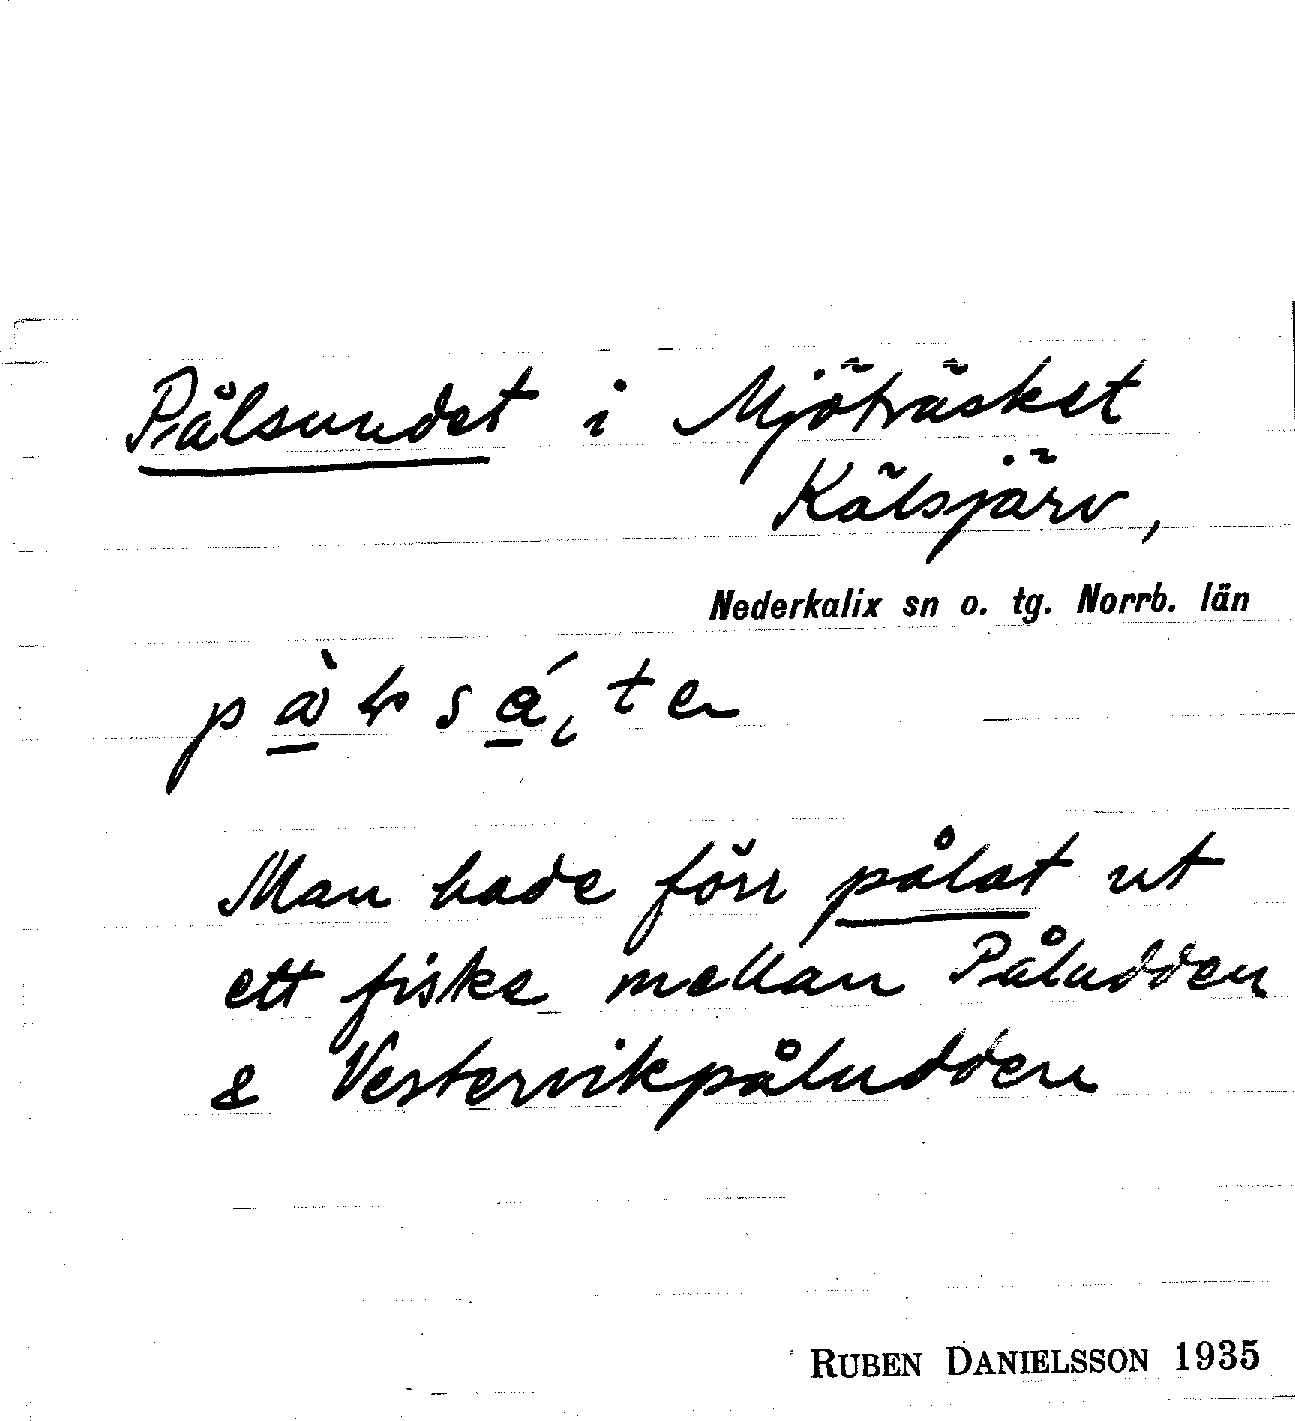 Pålsundet i Mjöträsket
Kälsjärv,
Nederkalix sn o. tg. Norrb. län
Man hade förr pålat ut
ett fiske mellan Påludden
& Vestervikpåludden
RUBEN DANIELSSON 1935